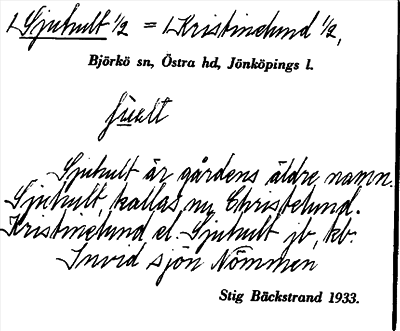 1 Sjuhult 1/2 = 1 Kristinelund 1/2,
Björkö sn, Östra hd, Jönköpings l.
Sjuhult är gårdens äldre namn.
Sjuhult, kallas nu Christelund.
Kristinelund el. Sjuhult jb, kb.
Invid sjön Nömmen
Stig Bäckstrand 1933.